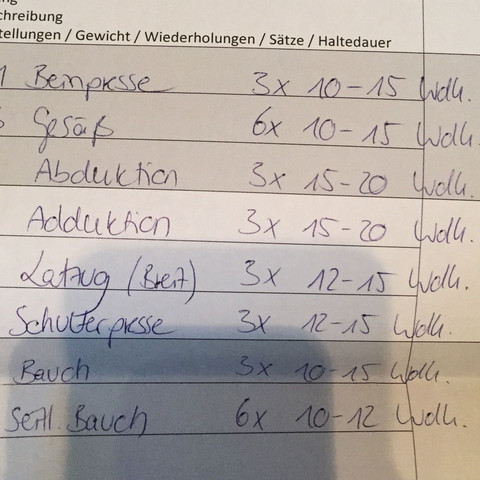 chreibung
tellungen / Gewicht / Wiederholungen / Sätze / Haltedauer
1 Beinpresse 3x 10-15 Wdh.
Gesäß 6x 10-15 Wdh.
Abduktion 3x 15-20 Wdh.
Adduktion 3x 15-20 Wdh.
Latzug (Breit) 3x 12-15 Wdh.
Schulterpresse 3x 12-15 Wdh.
Bauch 3x 10-15 Wdh.
Seitl. Bauch 6x 10-12 Wdh.